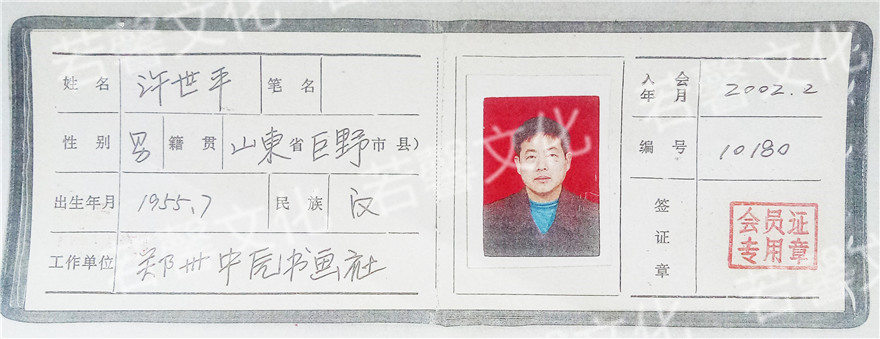 姓名 许世平 笔名
性别 男 籍贯 山東省巨野市县)
出生年月 1955.7 民族 汉
工作单位 郑州中原书画社
入会年月 2002.2
编号 10180
签证章
会员证
专用章
若馨文化